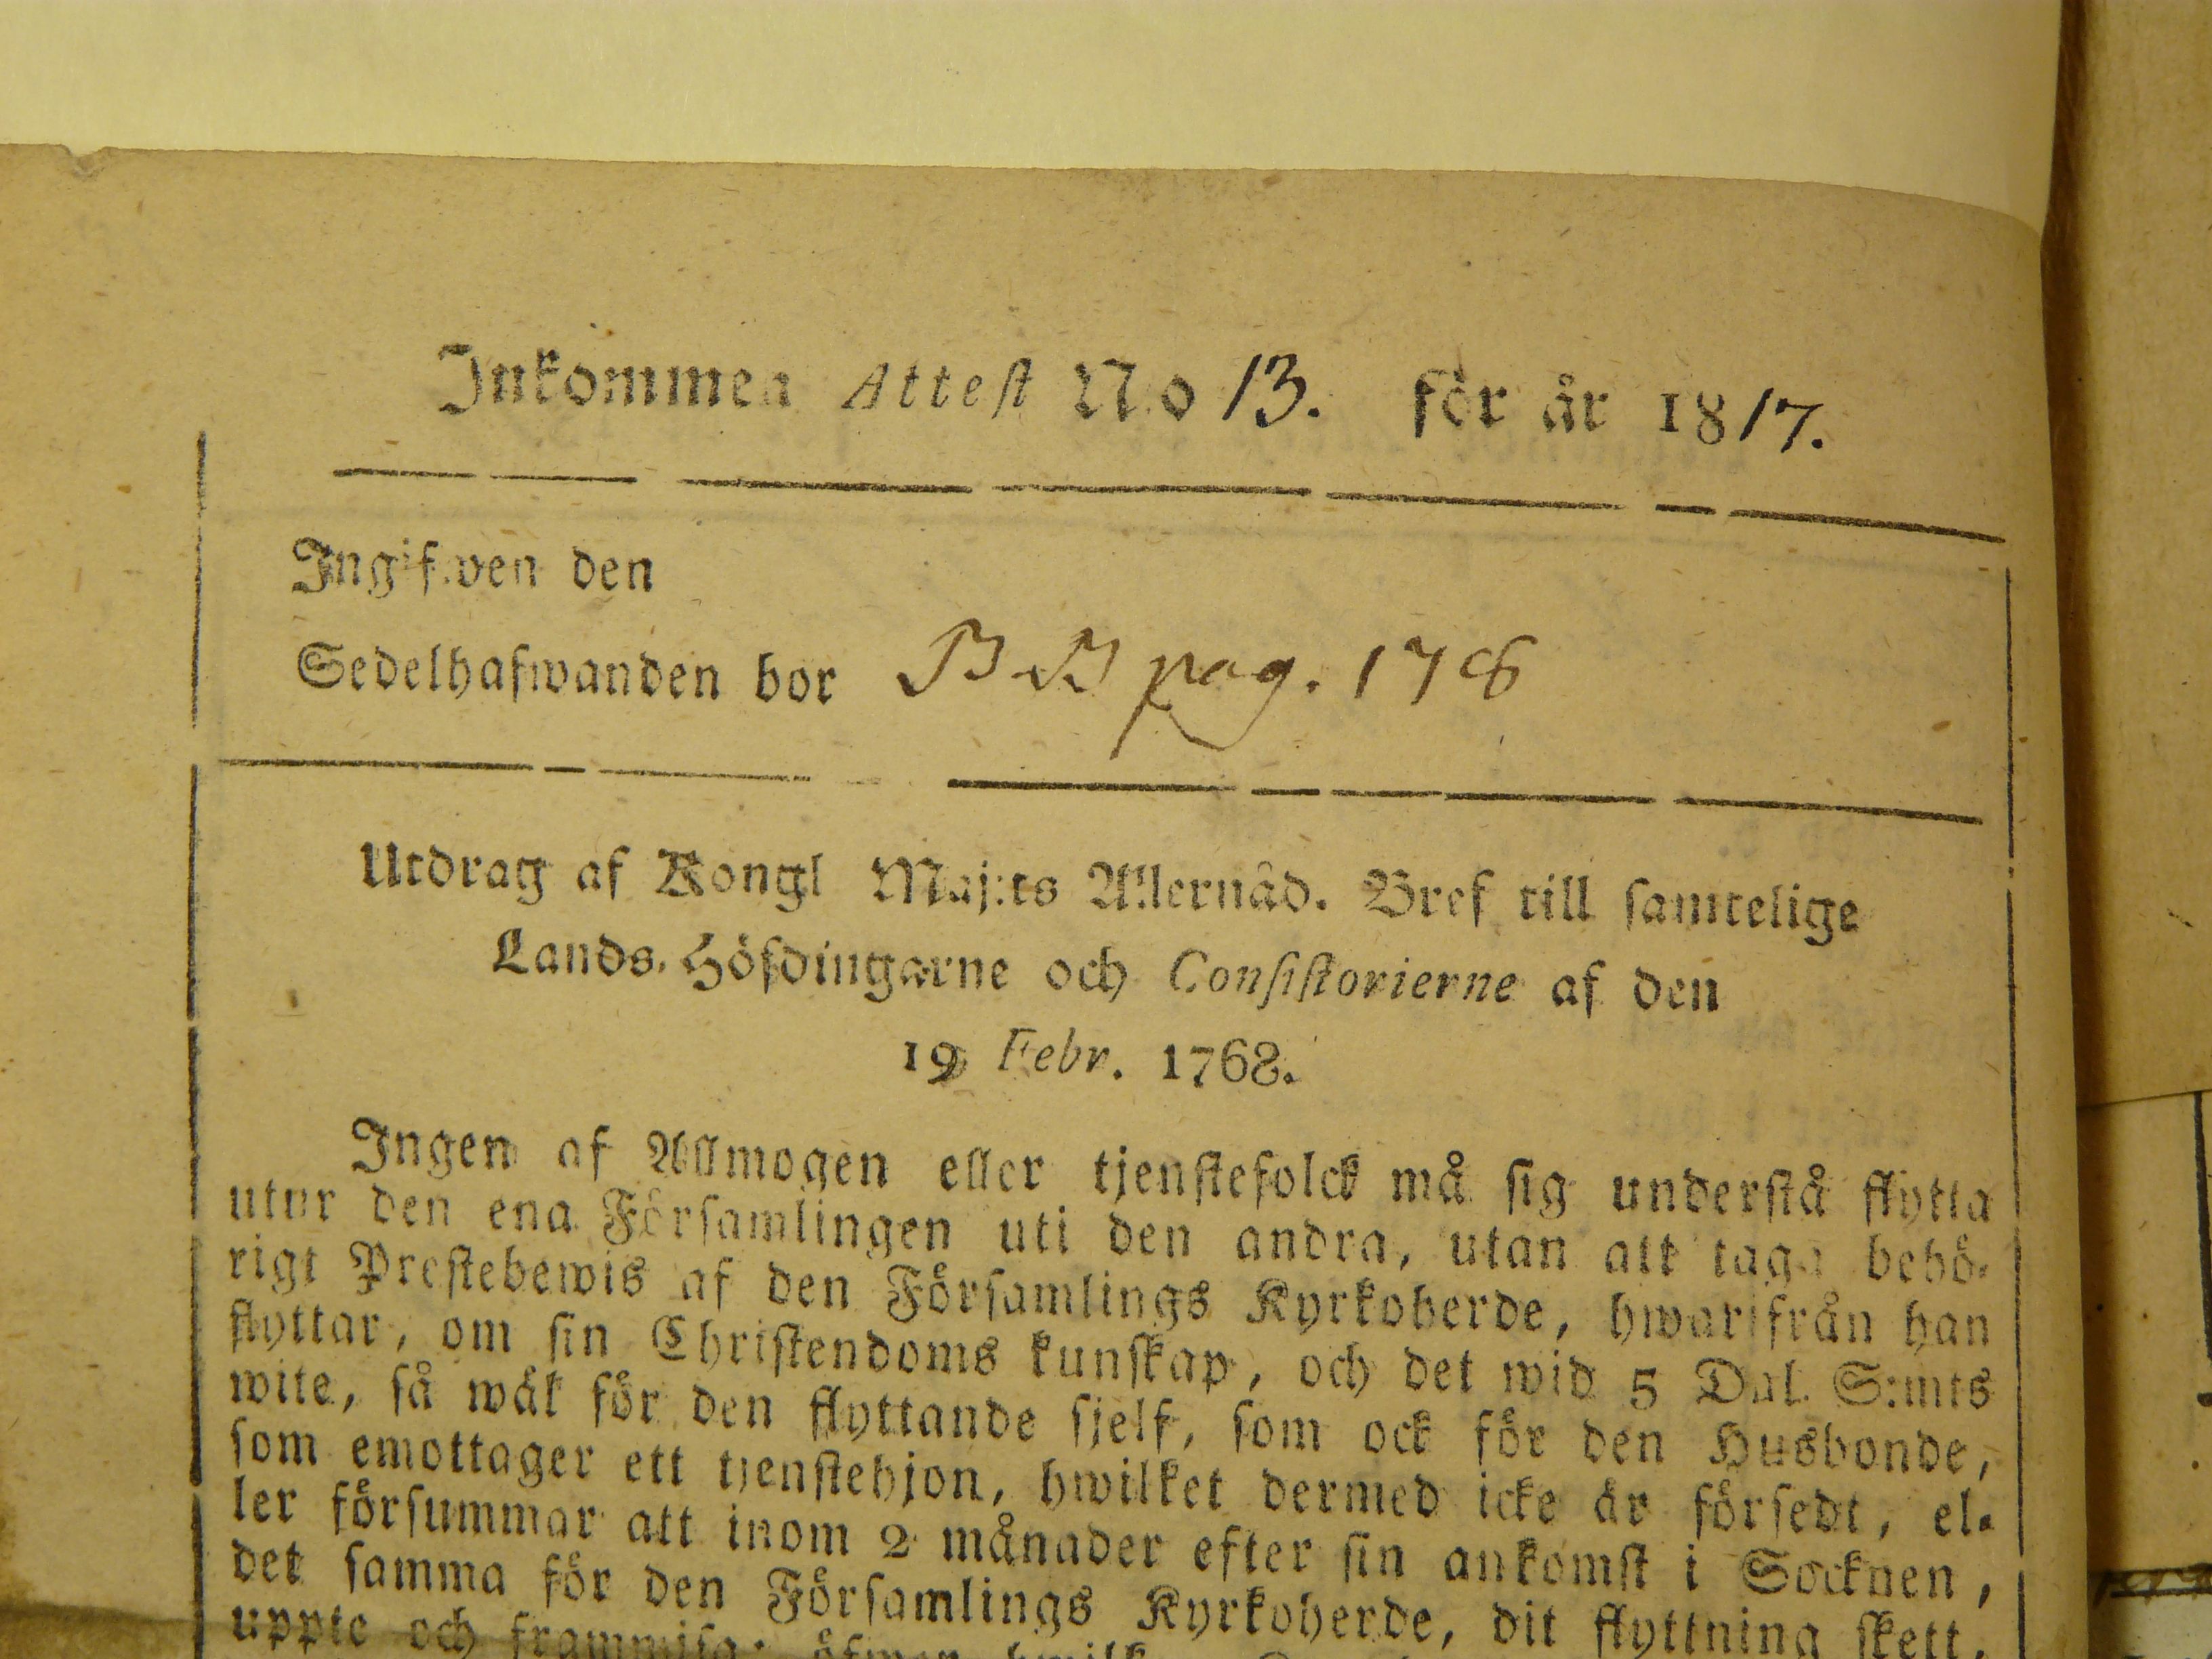 Inkommen Attest No 13. för år 1817.
Ingifwen den
Sedelhafwanden bor B B pag. 178
Utdrag af Kongl Maj:ts Allernåd. Bref till samtelige
Lands-Höfdingarne och Consistorierne af den
19 Febr. 1768.
Ingen af Allmogen eller tjenstefolck må sig understå flytta
utur den ena Församlingen uti den andra, utan att taga behö-
rigt Prestebewis af den Församlings Kyrkoherde, hwarifrån han
flyttar, om sin Christendoms kunskap, och det wid 5 Dal. S:mts
wite, så wäl för den flyttande sjelf, som ock för den Husbonde,
som emottager ett tjenstehjon, hwilket dermed icke är försedt, el-
ler försummar att inom 2 månader efter sin ankomst i Socknen,
det samma för den Församlings Kyrkoherde, dit flyttning skett,
uppte och frammisa; öfwer